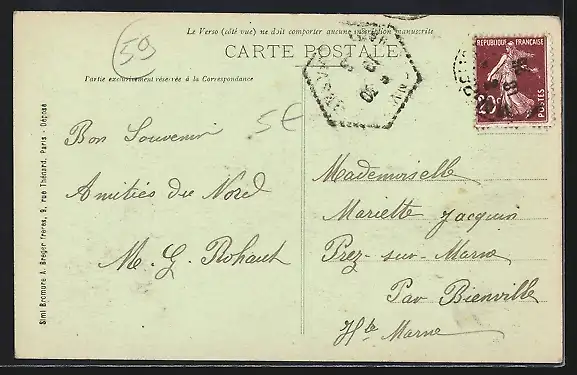 Le Verso (côté vue) ne doit comporter aucune inscription manuscrite
CARTE POSTALE
Partie exclusivement réservée à la Correspondance
59
5€
RÉPUBLIQUE FRANÇAISE
20c
POSTES
Bon Souvenir
Amitiés du Nord
M. G. Rohaut
Mademoiselle
Mariette Jacquin
Prez-sur-Marne
Par Bienville
Hte Marne
Simi Bromure A. Breger frères, 9, rue Thénard, Paris - Déposé